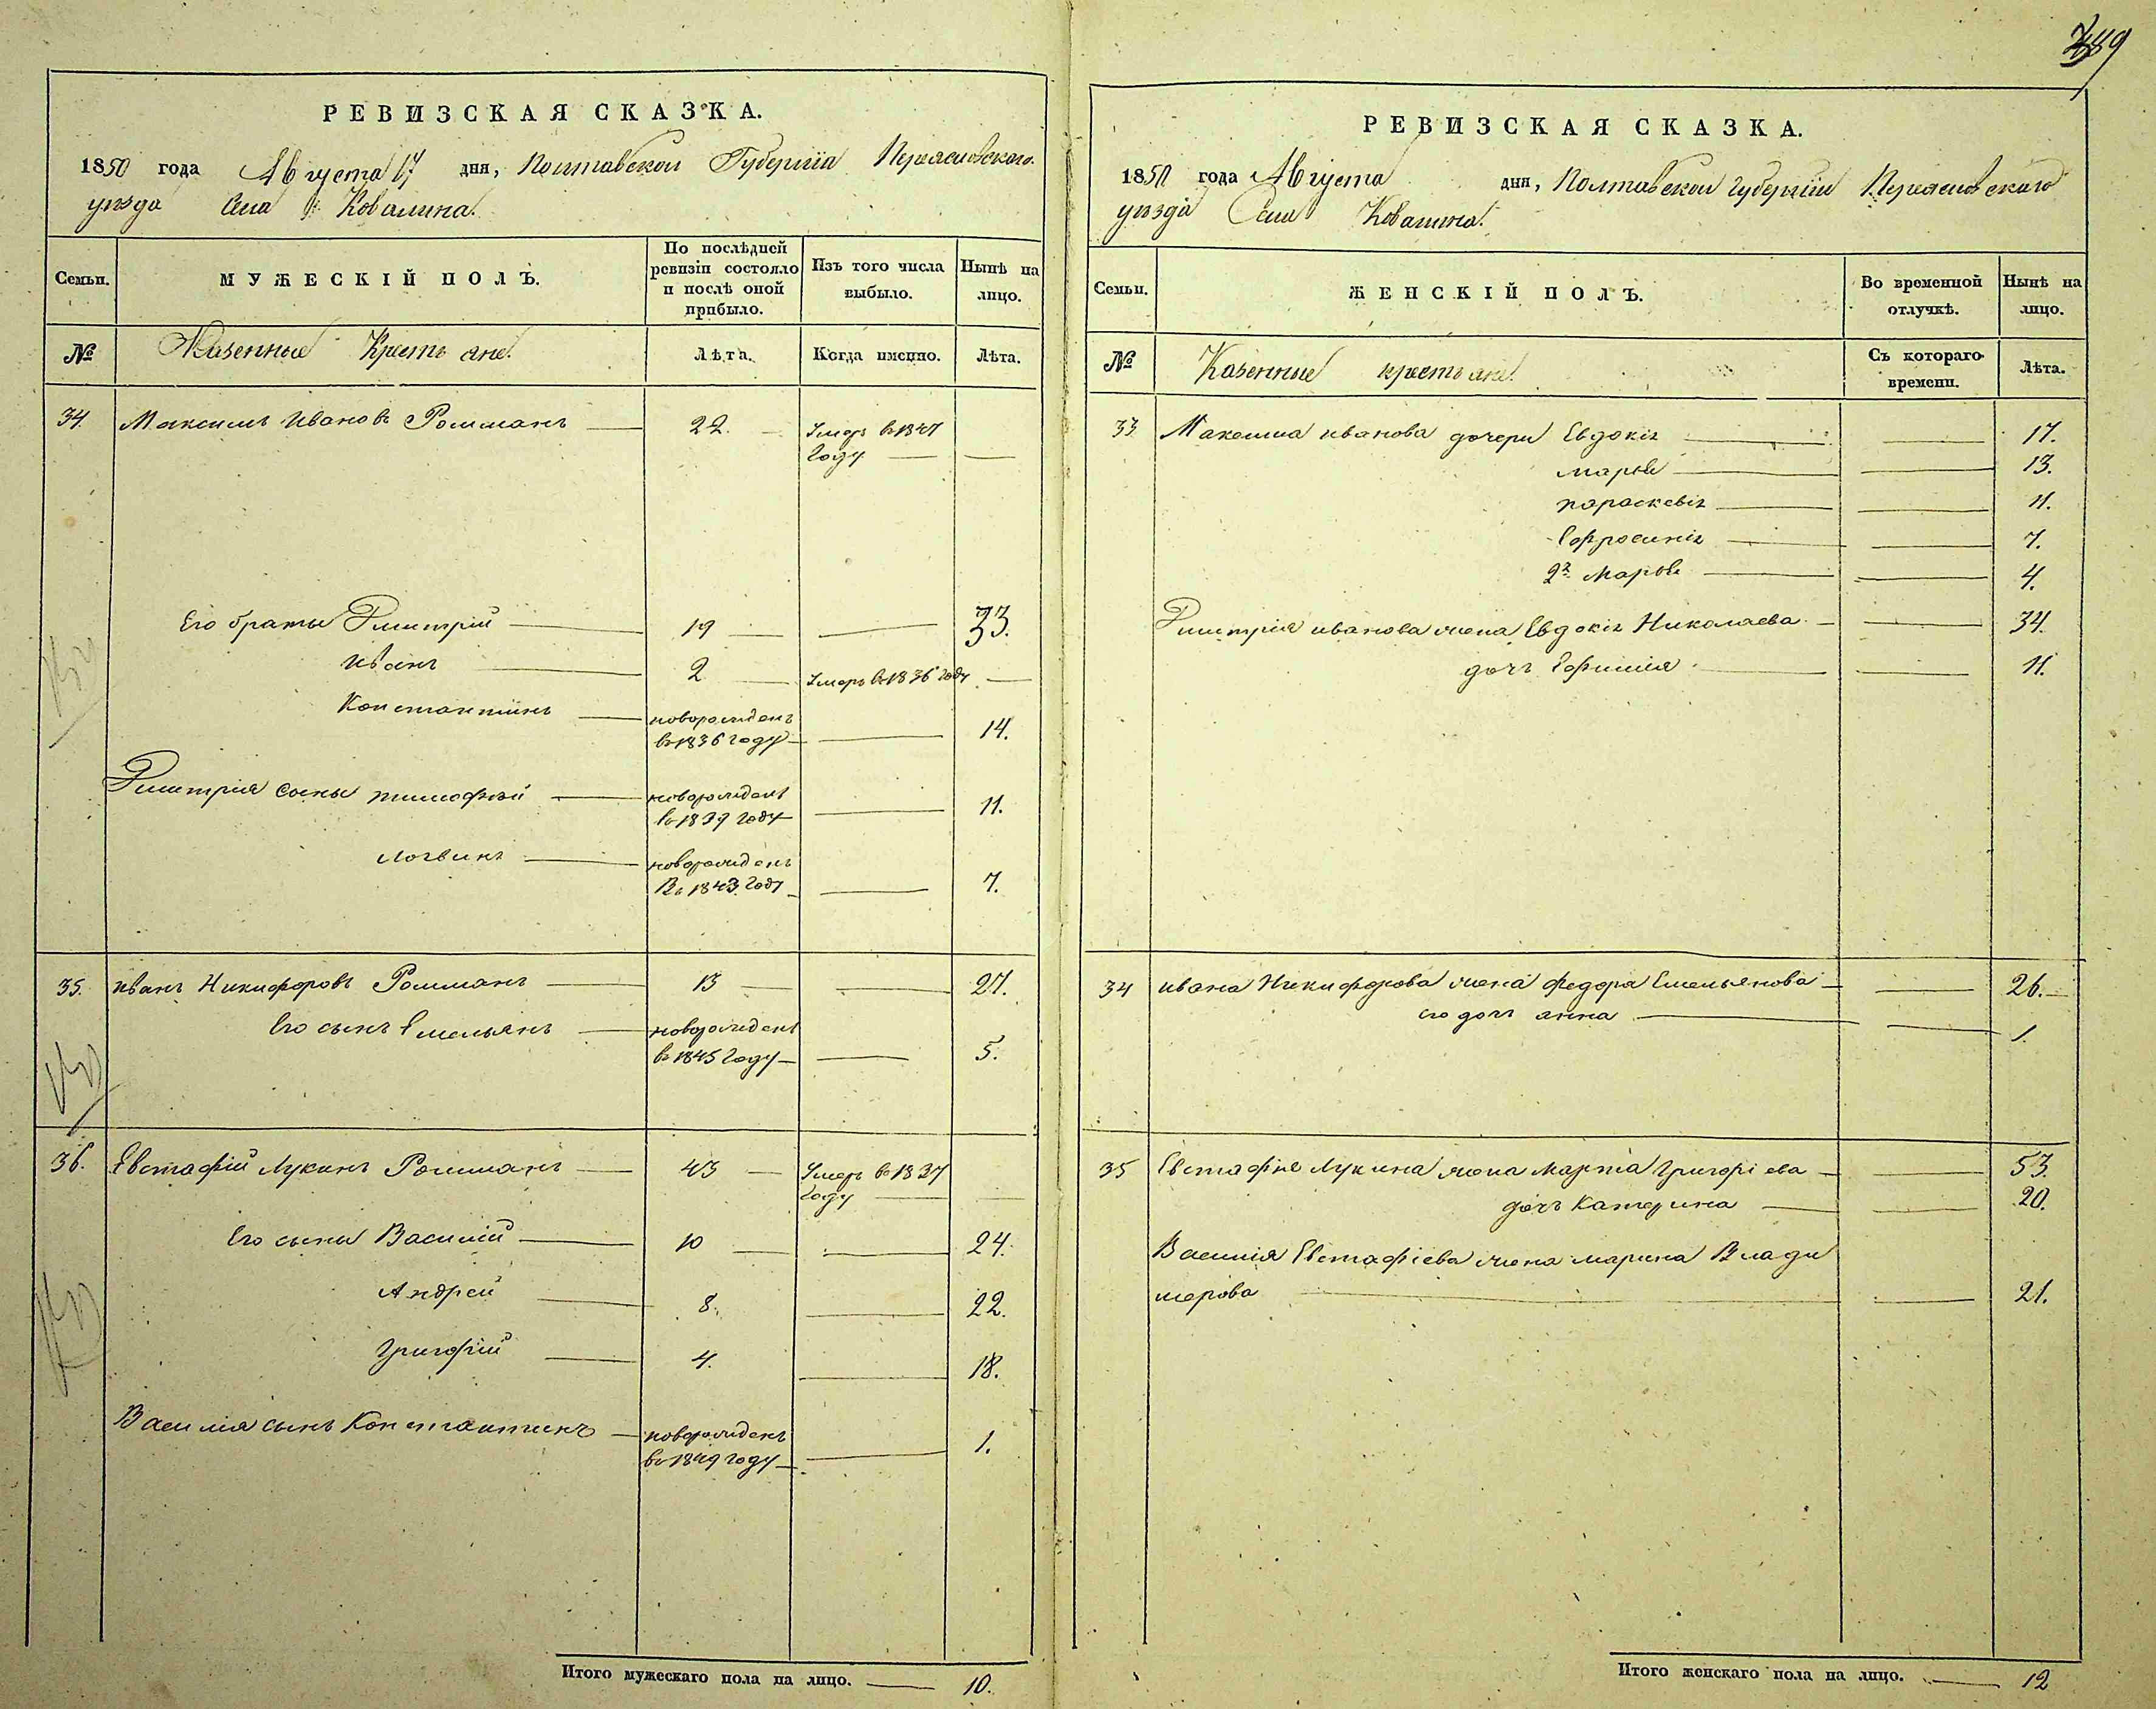 389
РЕВИЗСКАЯ СКАЗКА.
1850 года Августа 17 дня, Полтавской Губерніи Переясловскаго
уезда Села Ковалина.
Семьи. МУЖЕСКІЙ ПОЛЪ. По послѣдней ревизіи состояло и послѣ оной прибыло. Изъ того числа выбыло. Нынѣ на лицо.
№ Казенные Крестьяне. Лѣта. Когда именно. Лѣта.
34. Максимъ Ивановъ Рошманъ 22. Умеръ в 1847
Году
Его братья Дмитрій 19 33.
Иванъ 2 Умеръ в 1836 году
Константинъ новорожденъ
в 1836 году 14.
Дмитрія сыны тимофей новорожденъ
в 1839 году 11.
логвинъ новорожденъ
Въ 1843 году 7.
35. иванъ Никифоровъ Рошманъ 13 27.
Его сынъ Емельянъ новорожденъ
в 1845 Году 5.
36. Евстафій Лукинъ Рошманъ 43 Умеръ в 1837
Году
Его сыны Василий 10 24.
Андрей 8. 22.
Григорій 4. 18.
Василия сынъ Константинъ новорожденъ
в 1849 году 1.
Итого мужескаго пола на лицо. 10.
РЕВИЗСКАЯ СКАЗКА.
1850 года Августа дня, Полтавской Губерніи Переясловскаго
уезда Села Ковалина.
Семьи. ЖЕНСКІЙ ПОЛЪ. Во временной отлучкѣ. Нынѣ на лицо.
№ Казенные крестьяне. Съ котораго времени. Лѣта.
33 Максима иванова дочери Евдокія 17.
марья 13.
параскевія 11.
Ефросинія 7.
2я Марья 4.
Дмитрія иванова жена Евдокія Николаева 34.
дочь Ефимія 11.
34 ивана Никифорова жена федора Емельянова 26.
его дочь анна 1.
35 Евстафія Лукина жена Марта Григоріева 53.
дочь Катерина 20.
Василія Евстафіева жена марина Влади
мерова 21.
Итого женскаго пола на лицо. 12